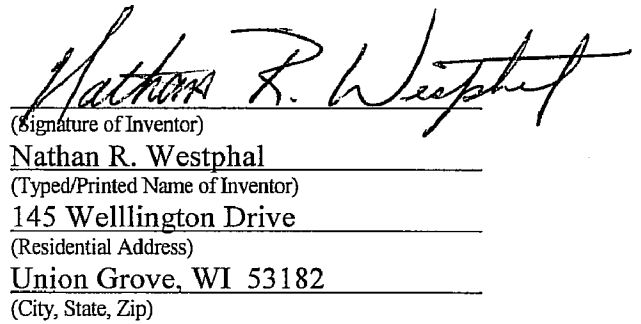 Nathan R. Westphal
(Signature of Inventor)
Nathan R. Westphal
(Typed/Printed Name of Inventor)
145 Welllington Drive
(Residential Address)
Union Grove, WI 53182
(City, State, Zip)